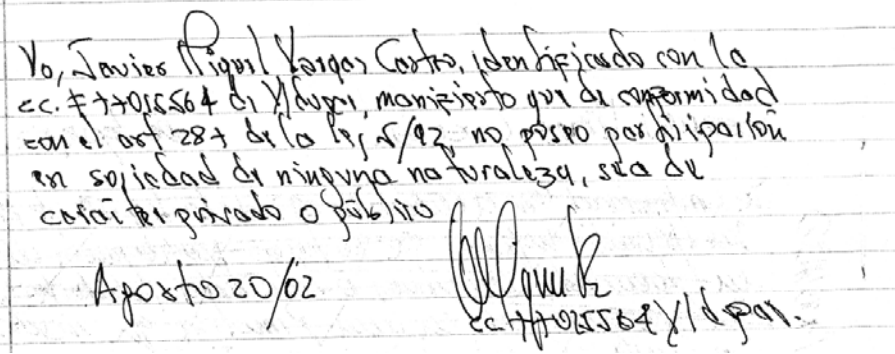 Yo, Javier Miguel Vargas Castro, identificado con la
cc. # 77025564 de V/dupar, manifiesto que de conformidad
con el art 287 de la ley 5/92, no poseo participación
en sociedad de ninguna naturaleza, sea de
carácter privado o público
Agosto 20/02
cc 77025564 V/dupar.